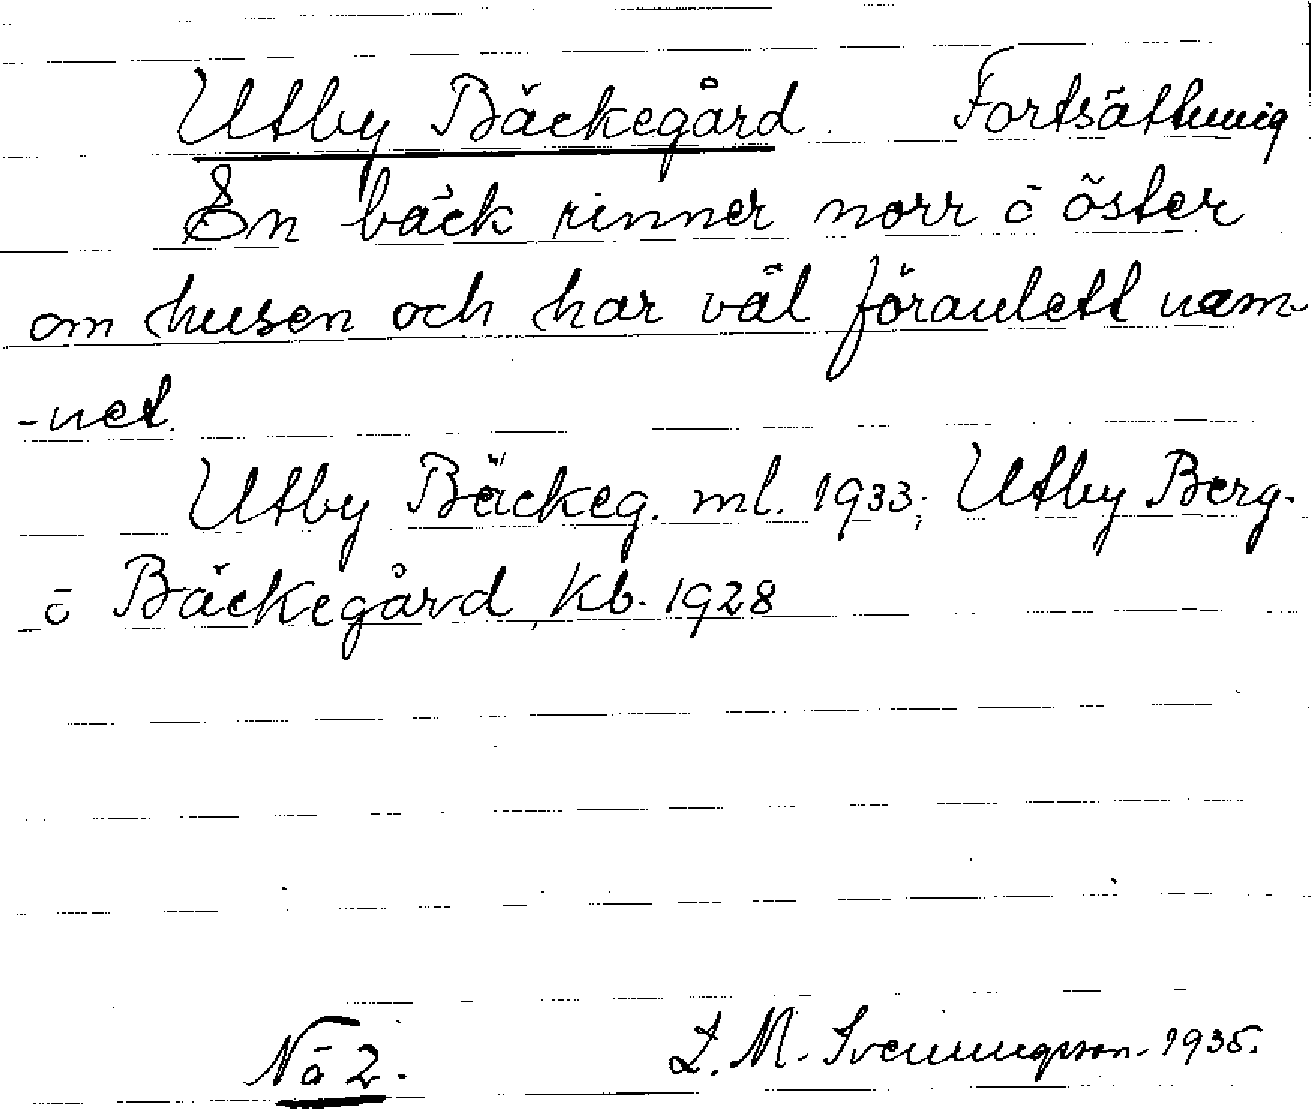 Utby Bäckegård. Fortsättning
En bäck rinner norr ö öster
om husen och har väl föranlett nam-
-net.
Utby Bäckeg. ml. 1933; Utby Berg-
ö Bäckegård, Kb. 1928
Nä 2. L. M. Svenungsson. 1935.